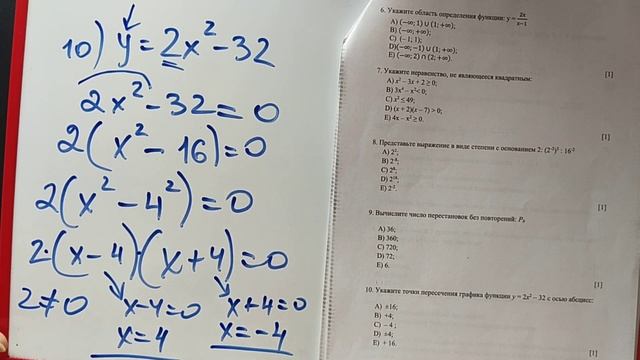 10) y = 2x² - 32
2x² - 32 = 0
2(x² - 16) = 0
2(x² - 4²) = 0
2·(x - 4)·(x + 4) = 0
2 ≠ 0 x - 4 = 0 x + 4 = 0
x = 4 x = -4
6. Укажите область определения функции: y = 2x/(x-1)
A) (-∞; 1) ∪ (1; +∞);
B) (-∞; +∞);
C) (- 1; 1);
D)(-∞; -1) ∪ (1; +∞);
E) (-∞; 2) ∩ (2; +∞).
[1]
7. Укажите неравенство, не являющееся квадратным:
A) x² – 3x + 2 ≥ 0;
C) x² ≤ 49;
D) (x + 2)(x – 7) > 0;
E) 4x – x² ≥ 0.
[1]
8. Представьте выражение в виде степени с основанием 2:
[1]
9. Вычислите число перестановок без повторений:
A) 36;
B) 360;
C) 720;
D) 72;
E) 6.
[1]
10. Укажите точки пересечения графика функции y = 2x² – 32 с осью абсцисс:
A) ±16;
B) +4;
C) – 4 ;
D) ±4;
E) + 16.